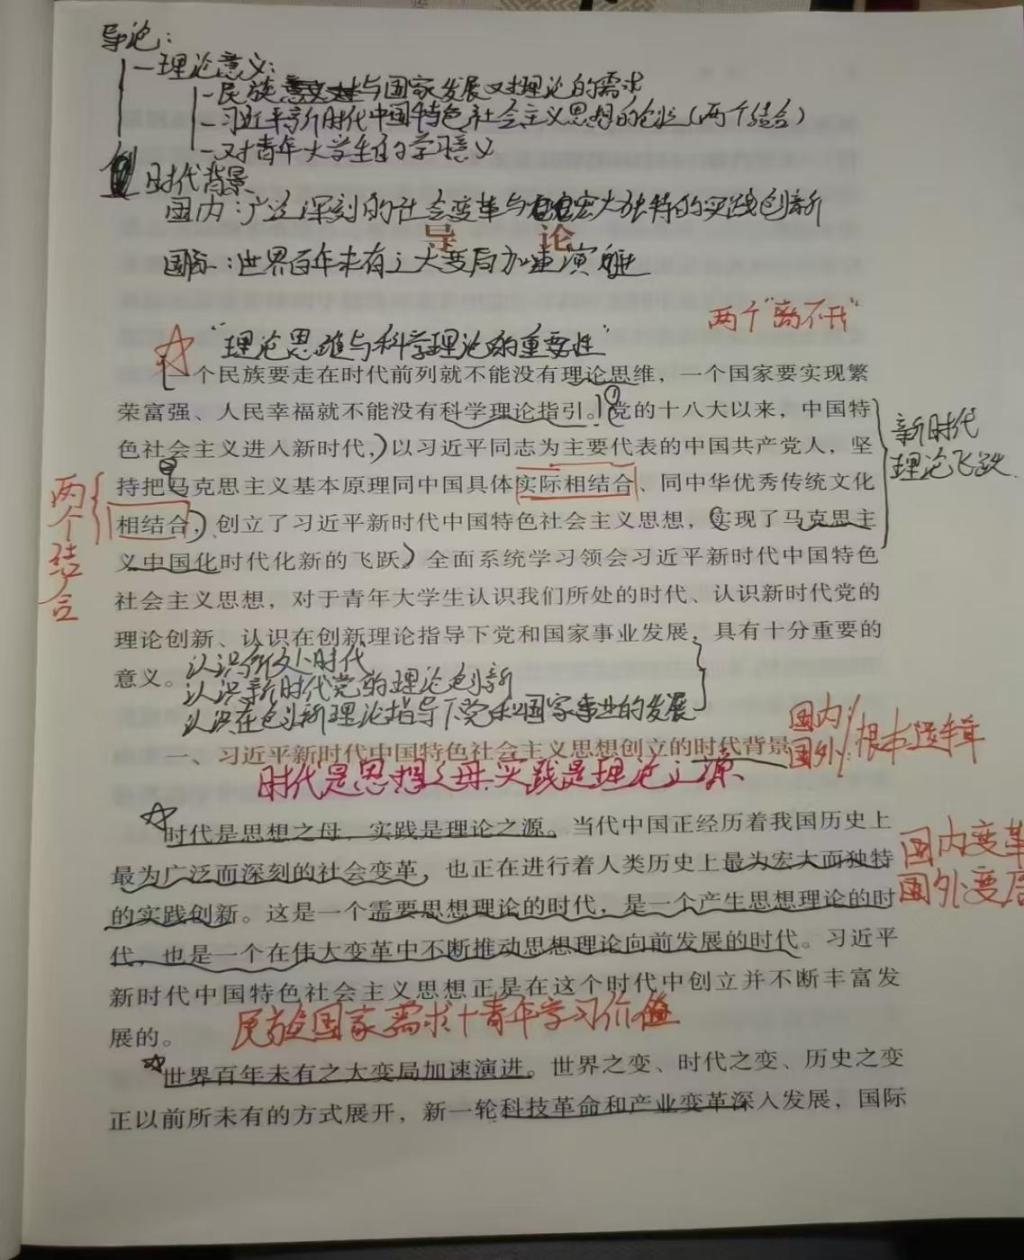 导论：
一理论意义：
-民族与国家发展对理论的需求
-习近平新时代中国特色社会主义思想的创立（两个结合）
-对青年大学生的学习意义
时代背景
国内：广泛深刻的社会变革与宏大独特的实践创新
导 论
国际：世界百年未有之大变局加速演进
两个“离不开”
“理论思维与科学理论的重要性”
一个民族要走在时代前列就不能没有理论思维，一个国家要实现繁
荣富强、人民幸福就不能没有科学理论指引。①党的十八大以来，中国特
色社会主义进入新时代，）以习近平同志为主要代表的中国共产党人，坚
新时代
理论飞跃
②
持把马克思主义基本原理同中国具体实际相结合、同中华优秀传统文化
两个结合
相结合，）创立了习近平新时代中国特色社会主义思想，（实现了马克思主
义中国化时代化新的飞跃）全面系统学习领会习近平新时代中国特色
社会主义思想，对于青年大学生认识我们所处的时代、认识新时代党的
理论创新、认识在创新理论指导下党和国家事业发展，具有十分重要的
意义。
认识所处时代
认识新时代党的理论创新
认识在创新理论指导下党和国家事业的发展
一、习近平新时代中国特色社会主义思想创立的时代背景
国内
国外
时代是思想之母，实践是理论之源
时代是思想之母，实践是理论之源。当代中国正经历着我国历史上
最为广泛而深刻的社会变革，也正在进行着人类历史上最为宏大而独特
国内变革
国外变局
的实践创新。这是一个需要思想理论的时代，是一个产生思想理论的时
代，也是一个在伟大变革中不断推动思想理论向前发展的时代。习近平
新时代中国特色社会主义思想正是在这个时代中创立并不断丰富发
展的。
民族国家需求+青年学习价值
世界百年未有之大变局加速演进。世界之变、时代之变、历史之变
正以前所未有的方式展开，新一轮科技革命和产业变革深入发展，国际